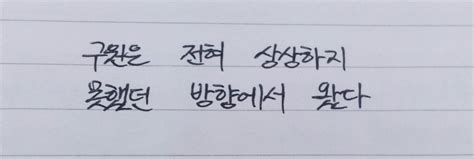 구원은 전혀 상상하지
못했던 방향에서 왔다